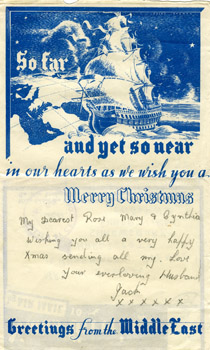 So far
and yet so near
in our hearts as we wish you a
Merry Christmas
My Dearest Rose Mary & Cynthia
Wishing you all a very happy
Xmas sending all my Love
Your everloving Husband
Jack
x x x x x x
Greetings from the Middle East